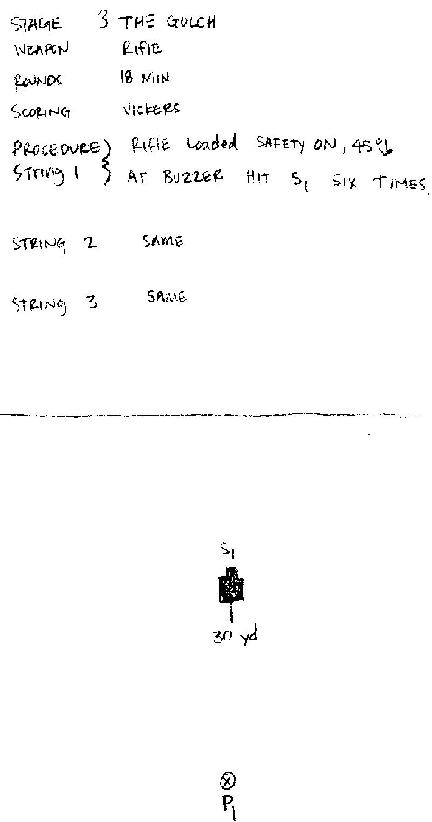 STAGE 3 THE GULCH
WEAPON RIFLE
ROUNDS 18 MIN
SCORING VICKERS
PROCEDURE) RIFLE LOADED SAFETY ON, 45°
STRING 1 } AT BUZZER HIT S1 SIX TIMES
STRING 2 SAME
STRING 3 SAME
S1
30 yd
P1